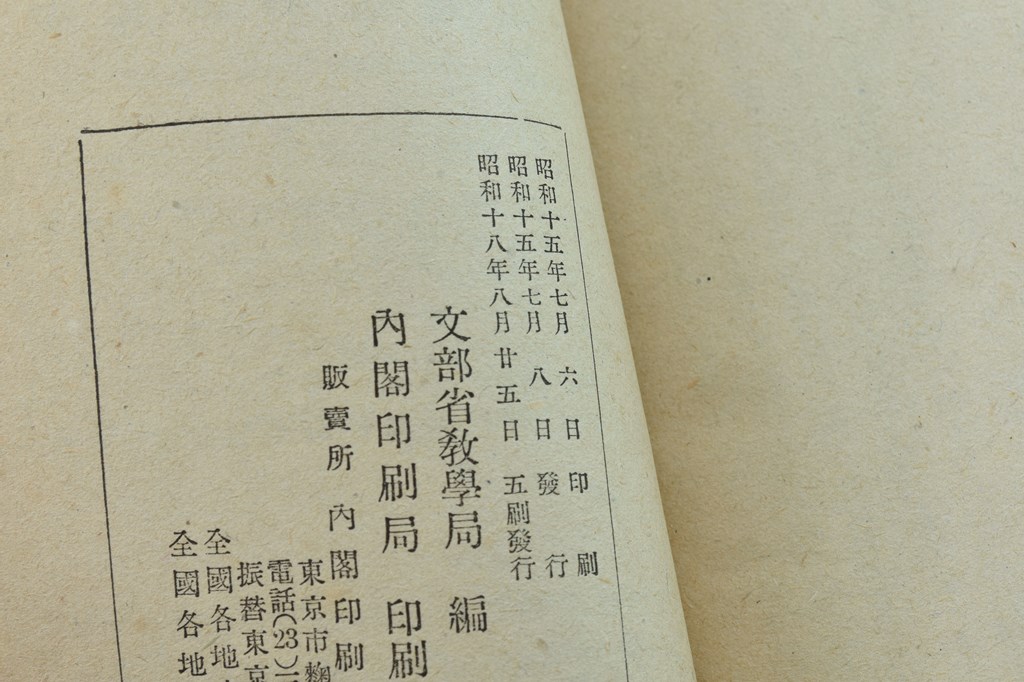 昭和十五年七月六日印刷
昭和十五年七月八日發行
昭和十八年八月廿五日五刷發行
文部省敎學局編
內閣印刷局印刷
販賣所內閣印刷
東京市麴
電話(23)
振替東京
全國各地
全國各地